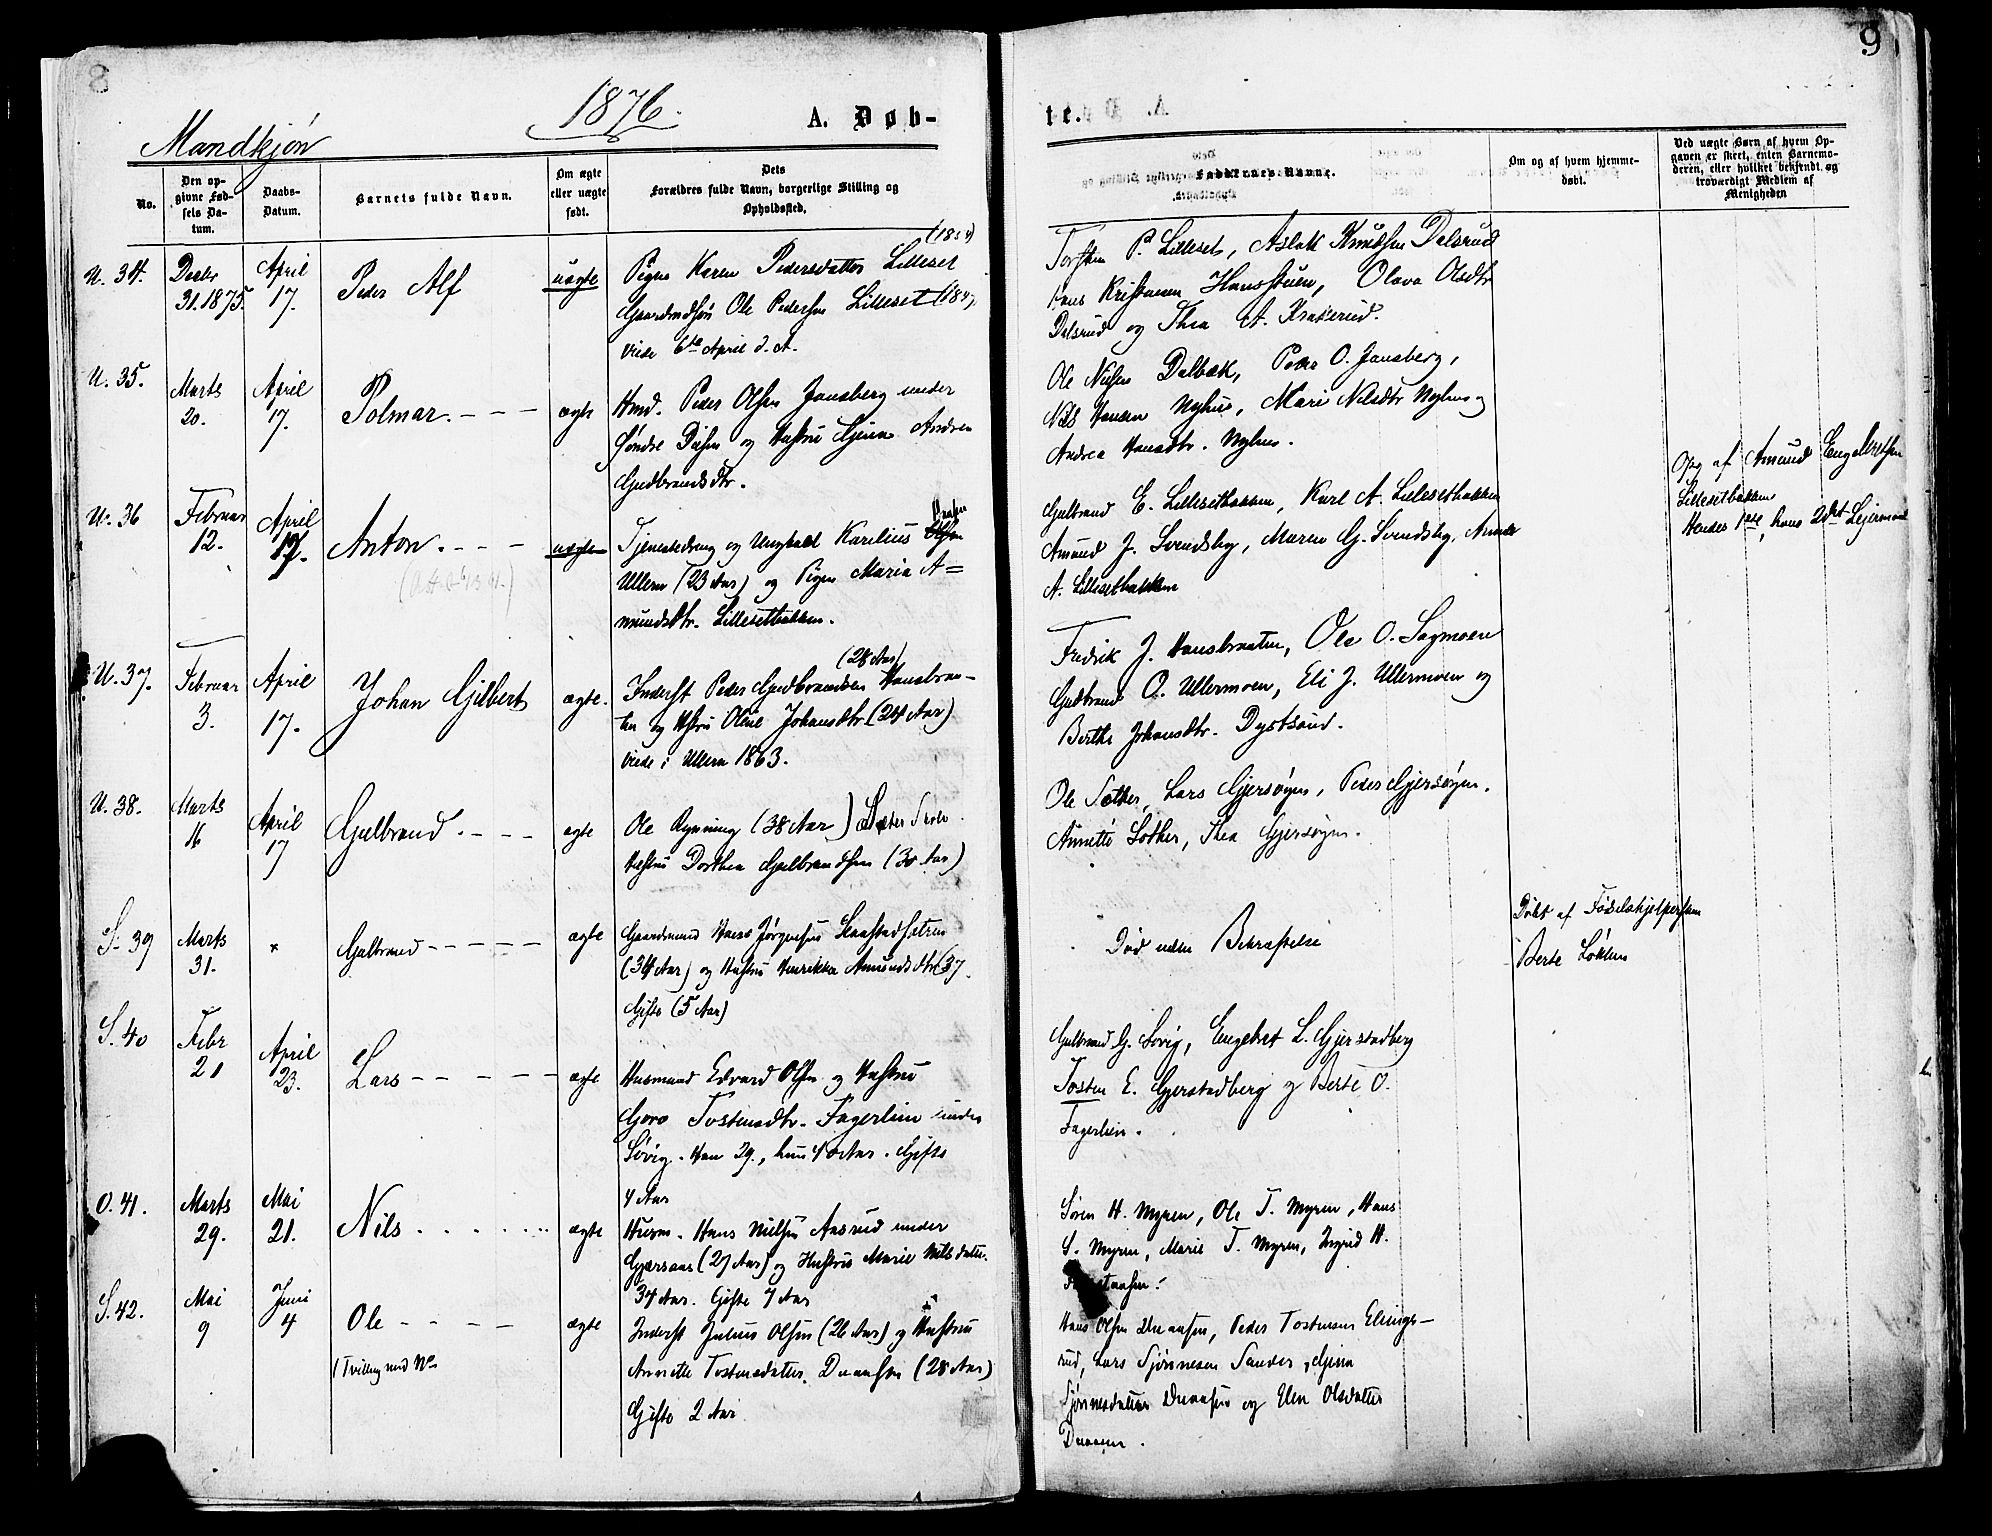 8
1876.
A. Døb-
Mandkjøn
No.
Den op-
givne Fød-
sels Da-
tum.
Daabs-
Datum.
Barnets fulde Navn.
Om ægte
eller uægte
født.
Dets
Forældres fulde Navn, borgerlige Stilling og
Opholdssted.
U. 34.
Decbr
31. 1875.
April
17.
Peder Alf
uægte
Pigen Karen Pedersdatter Lilleset
Ole Pedersen Lilleset (1847)
viede 6te April d. A.
U. 35.
Marts
20.
April
17.
Polmar. - - -
ægte
Hmd. Peder Olsen Jonsberg under
og Hustru Andrea
Gudbrandsdtr.
U. 36
Februar
12.
April
17.
Anton. - - -
uægte
Tjenestedreng og Ungkarl Karilius
Ullern (23 Aar) og Pigen Maria A=
mundsdtr. Lillesetbakken.
U. 37.
Februar
3.
April
17.
Johan Gilbert
ægte.
(28 Aar)
Inderst Peder Gudbrandsen Hansbraa-
ten og Hstru Oline Johansdtr (24 Aar)
viede i Ullern 1863.
U. 38.
Marts
16
April
17
Gulbrand. - - -
ægte
Ole Rynning (38 Aar)
Hustru Dorthea Gulbrandsen (30 Aar)
S. 39
Marts
31.
Gulbrand - - - - -
ægte
Gaardmand Hans Jørgensen
(34 Aar) og Hustru Henrikka Amundsdtr (37.
Gifte (5 Aar)
S. 40
Febr
21
April
23.
Lars - - - - -
ægte
Husmand Edvard Olsen og Hustru
Goro Tostensdtr. Fagerlien under
Søvig. Han 29., hun 40 Aar. Gifte
4 Aar
O. 41.
Marts
29.
Mai
21.
Nils . . . . . .
ægte
Husm. Hans Nielsen Aasrud under
Gjersaas (27 Aar) og Hustru Marie Nilsdatter.
34 Aar. Gifte 7 Aar
S. 42.
Mai
9
Juni
4
Ole - - - - -
(Tvilling med No
ægte
Inderst Julius Olsen (26 Aar) og Hustru
Annette Tostensdatter (28 Aar)
Gifte 2 Aar
9
te.
Faddernes Navne.
Om og af hvem hjemme-
døbt.
Ved uægte Børn af hvem Op-
gaven er skeet, enten Barnemo-
deren, eller hvilket bekjendt og
troværdigt Medlem af
Menigheden
Torsten P. Lilleset, Aslak Knudsen Dalsrud
Hans Kristiansen Hansstuen, Olava Olsdtr
Dalsrud og Thea A. Krakerud.
Ole Nielsen Dalbæk, Peder O. Jonsberg,
Nils Hansen Nyhus, Mari Nilsdtr Nyhus og
Andrea Hansdtr. Nyhus.
Gulbrand E. Lillesetbakken, Karl A. Lillesetbakken
Amund J. Svendsby, Maren G. Svendsby,
A. Lillesetbakken
Opg af Amund Engebretsen
Lillesetbakken
Hendes 1ste, hans 2det Lejermaal
Fredrik J. Hansbraaten, Ole O. Sagmoen
Gudbrand O. Ullermoen, Eli J. Ullermoen og
Berthe Johansdtr. Dystsand.
Ole Sæther, Lars Gjersøyen, Peder Gjersøyen.
Annette Sæther, Thea Gjersøyen.
Død uden Bekræftelse
Døbt af Fødselshjelpersken
Berte Løkken
Gulbrand G. Søvig, Engebret L. Gjerstadberg
Tosten E. Gjerstadberg og Berte O.
Fagerlien.
Søren H. Myren, Ole T. Myren, Hans
S. Myren, Marie T. Myren, Ingrid H.
Hans Olsen Peder Tostensen Elings-
rud, Lars
og Elen Olsdatter